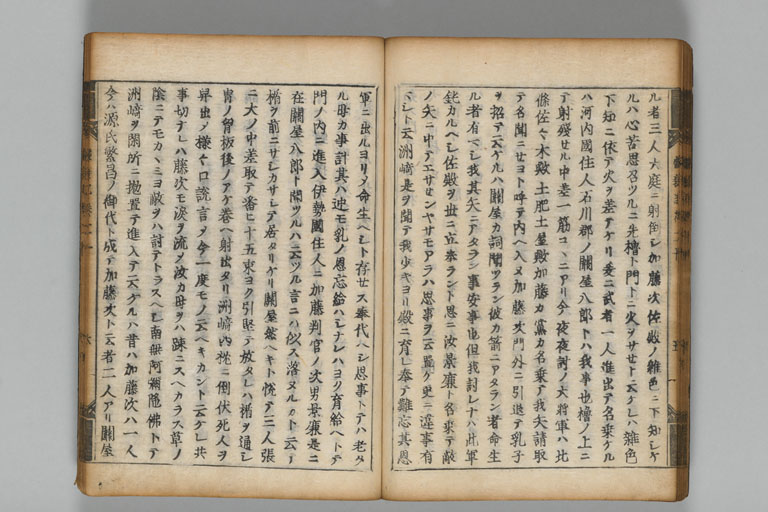 ル者三人大庭ニ射倒シ加藤次佐殿ノ雑色ニ下知シケ
ルハ心苦思召ツルニ先櫓ト門トニ火ヲサセト云ケレハ雑色
下知ニ依テ火ヲ差テケリ爰ニ武者一人進出テ名乗ケル
ハ河内國住人石川郡ノ關屋八郎トハ我事也櫓ノ上ニ
テ射殘セル中差一筋コヽニアリ今夜夜討ノ大將軍ハ比
條佐々木殿土肥土屋殿加藤カ黨カ名乗テ我矢請取
テ名聞ニセヨト呼テ内ヘ入ヌ加藤次門外ニ引退テ乳子
ヲ招テ云ケルハ關屋カ詞聞ツラン彼カ箭ニアタラン者命生
ル者有ヘシ我其矢ニアタラン事安事也但我討レナハ此軍
鈍カルヘシ佐殿ヲ世ニ立奉ラント思ニ汝景廉ト名乗テ敵
ノ矢ニ中テエサセンヤサモアラハ思事ヲ云置ケ更ニ違事有
ヘシト云洲崎是ヲ聞テ我少キヨリ殿ニ育シ奉テ難忘其恩
軍ニ出ルヨリノ命生ヘシト存セス乗代ヘシ思事トテハ老タ
ル母カ事計其ハ迚モ乳ノ恩忘給ハシナレハヨク育給ヘトテ
門ノ内ニ進入伊勢國住人ニ加藤判官ノ次男景廉是ニ
在關屋八郎ト聞ツルハ云ツル言ニハ似ス落ヌルカト云テ
楯ヲ前ニサシカサシテ居タリケリ關屋然ヘキト悦テ三人張
ニ大ノ中差取テ番ヒ十五束ヨク引堅テ放タレハ楯ヲ通シ
冑ノ胷板後ノアケ巻ヘ射出タリ洲崎内枕ニ倒伏死人ヲ
舁出ノ樣々口説言ノ今一度モノ云ヘキカント云ケレ共
事切ナレハ藤次モ涙ヲ流メ汝カ母ヲハ踈ニスヘカラス草ノ
陰ニテモカヽミヨ敵ヲハ討テトラスヘシ南無阿彌陀佛トテ
洲崎ヲ閑所ニ抛置テ進入テ云ケルハ昔ハ加藤次ハ一人
今ハ源氏繁昌ノ御代ト成テ加藤次ト云者二人アリ關屋